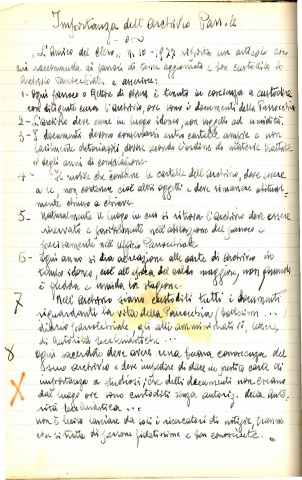 Importanza dell'Archivio Parr.le
"L'Amico del Clero" n. 10 - 1977 riporta un articolo con
cui raccomanda ai parroci di tenere aggiornato e ben custodito lo
Archivio Parrocchiale, e asserisce:
1. Ogni parroco o Rettore di chiesa è tenuto in coscienza a custodire
con diligente cura l'archivio, ove sono i documenti della Parrocchia
2- L'archivio deve essere in luogo idoneo, non soggetto ad umidità.
3- I documenti devono conservarsi entro cartelle ampie e non
facilmente deteriorabili secondo l'ordine di materie trattate
e degli anni di
4- Il mobile che contiene le cartelle dell'Archivio, deve essere
a sé, non contenere cioè altri oggetti e deve rimanere abitual-
mente chiuso a chiave.
5- Naturalmente il luogo in cui si ritrova l'Archivio deve essere
riservato e possibilmente nell'abitazione del parroco e
precisamente nell'Ufficio Parrocchiale
6- Ogni anno si dia areazione alle carte di archivio in
tempo idoneo, cioè all'epoca del caldo maggiore, non quando
è fredda e umida la stagione.
7 Nell'Archivio sono custoditi tutti i documenti
riguardanti la vita della Parrocchia
diario parrocchiale gli atti amministrativi, lettere,
di Autorità ecclesiastiche ...
8 Ogni sacerdote deve avere una buona conoscenza del
suo archivio e deve impedire di dare in prestito carte di
importanza a studiosi, che detti documenti non escano
dal luogo ove sono custoditi senza autoriz. della Auto-
rità ecclesiastica ...
X non è lecito lasciare da soli i ricercatori di notizie, tranne
che si tratti di persone fidatissime e ben conosciute.